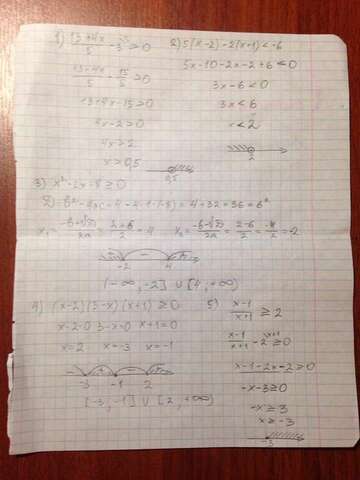 1) (13+4x)/5 - 3 > 0
(13+4x)/5 - 15/5 > 0
13+4x-15>0
4x-2>0
4x>2
x>0,5
0,5
2) 5(x-2)-2(x+1)<-6
5x-10-2x-2+6<0
3x-6<0
3x<6
x<2
2
3) x²-2x-8≥0
D=b²-4ac=4-4·1·(-8)=4+32=36=6²
x₁=(-b+√D)/2a=(2+6)/2=4 x₂=(-b-√D)/2a=(2-6)/2=-4/2=-2
-2 4
(-∞,-2] ∪ [4,+∞)
4) (x-2)(3-x)(x+1)≥0
x-2=0 3-x=0 x+1=0
x=2 x=-3 x=-1
-3 -1 2
[-3,-1] ∪ [2,+∞)
5) (x-1)/(x+1) ≥ 2
(x-1)/(x+1) - 2 ≥ 0
x-1-2x-2≥0
-x-3≥0
-x≥3
x≥-3
-3